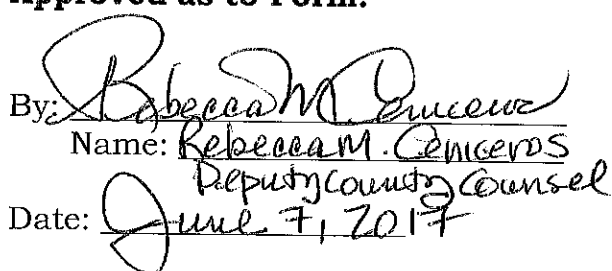 Approved as to Form:
By: Rebecca M Ceniceros
Name: Rebecca M. Ceniceros
Deputy County Counsel
Date: June 7, 2017